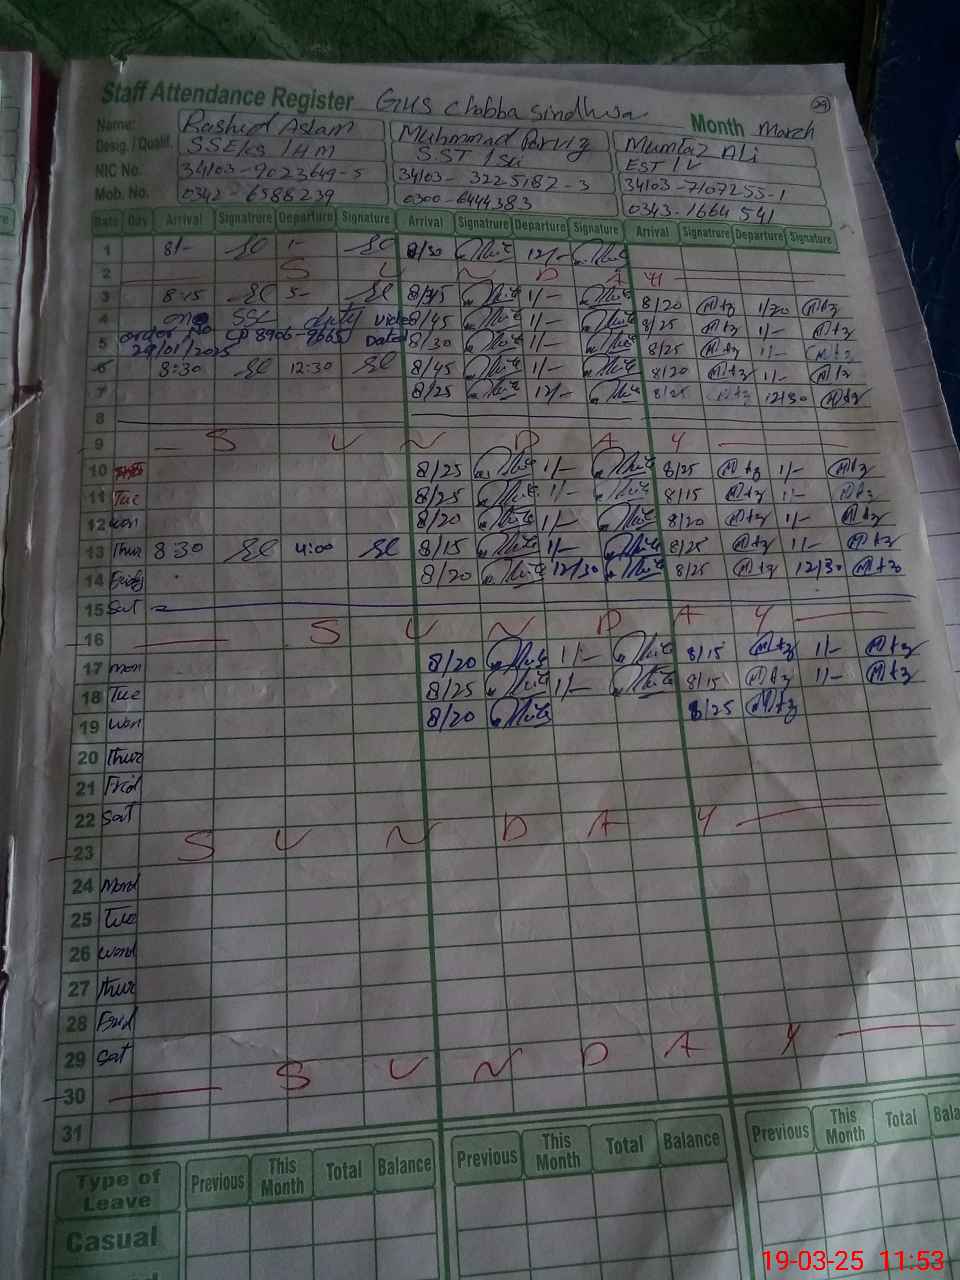 Staff Attendance Register GHS Chabba Sindhwa 29
Month March
Name: Rashid Aslam Muhmmad Parviz Mumtaz Ali
Desig. / Qualif. SSE/cs / HM SST / Sci EST / V
NIC No. 34103-9023649-5 34103-3225182-3 34103-7107255-1
Mob. No. 0342-6588239 0300-6444383 0343-1664541
Date Day Arrival Signatrure Departure Signature Arrival Signatrure Departure Signature Arrival Signatrure Departure Signature
1 8/- 1- 8/30 12/-
2 S U N D A Y
3 8:15 5- 8/45 1/- 8/20 1/20
4 one SSC duty vide 8/45 1/- 8/25 1/-
5 order No 8906-9665 Dated 8/30 1/- 8/25 1/-
29/01/2025
6 8:30 12:30 8/45 1/- 8/20 1/-
7 8/25 12/- 8/25 12/30
8
9 S U N D A Y
10 8/25 1/- 8/25 1/-
11 Tue 8/25 1/- 8/15 1/-
12 Won 8/20 1/- 8/20 1/-
13 Thur 8:30 4:00 8/15 1/- 8/25 1/-
14 Friday 8/20 12/30 8/25 12/30
15 Sat
16 S U N D A Y
17 mon 8/20 1/- 8/15 1/-
18 Tue 8/25 1/- 8/15 1/-
19 Won 8/20 8/25
20 Thur
21 Frid
22 Sat
23 S U N D A Y
24 Mond
25 Tue
26 Wond
27 Thur
28 Frid
29 Sat
30 S U N D A Y
31
Type of Leave Previous This Month Total Balance Previous This Month Total Balance Previous This Month Total Bala
Casual
19-03-25 11:53